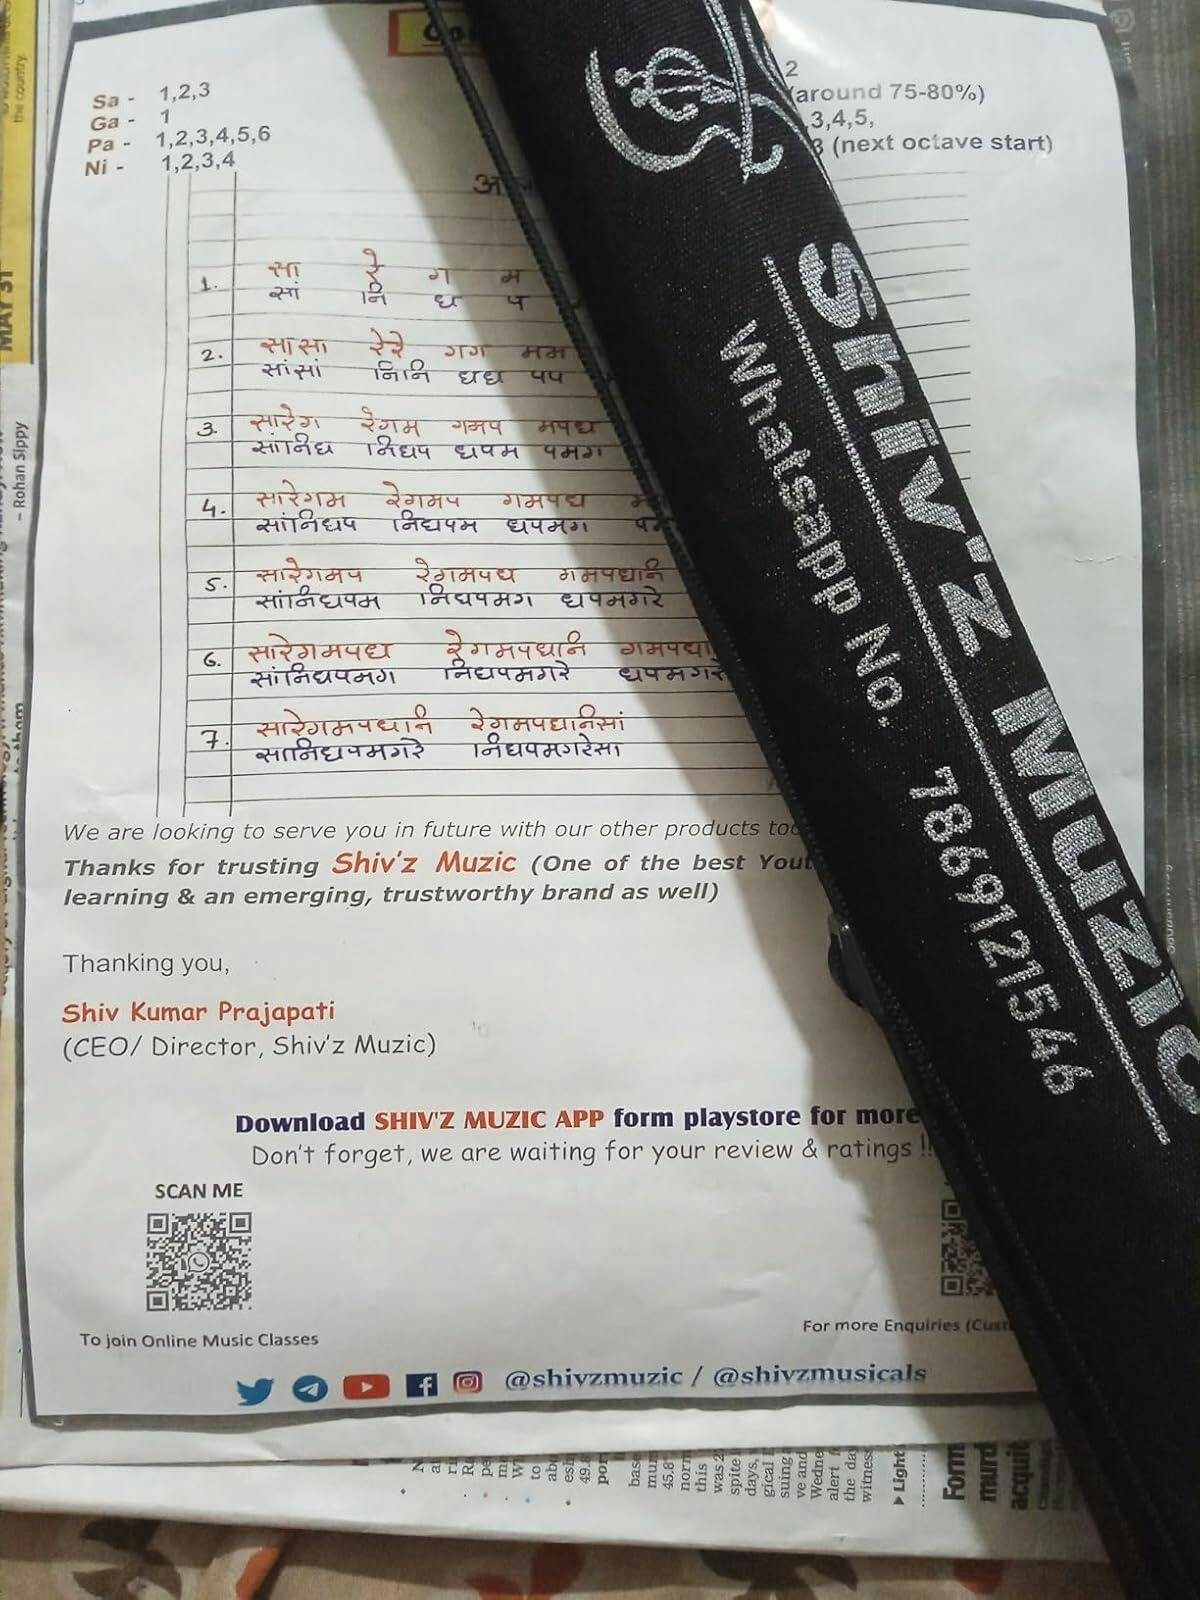 Sa - 1,2,3
Ga - 1
Pa - 1,2,3,4,5,6
Ni - 1,2,3,4
2
(around 75-80%)
3,4,5,
(next octave start)
1. सा रे ग म
सां नि ध प
2. सासा रेरे गग मम
सांसां निनि धध पप
3. सारेग रेगम गमप मपध
सांनिध निधप धपम पमग
4. सारेगम रेगमप गमपध
सांनिधप निधपम धपमग
5. सारेगमप रेगमपध गमपधनि
सांनिधपम निधपमग धपमगरे
6. सारेगमपध रेगमपधनि
सांनिधपमग निधपमगरे धपमगरे
7. सारेगमपधनि रेगमपधनिसां
सानिधपमगरे निधपमगरेसा
We are looking to serve you in future with our other products
Thanks for trusting Shiv'z Muzic (One of the best
learning & an emerging, trustworthy brand as well)
Thanking you,
Shiv Kumar Prajapati
(CEO/ Director, Shiv'z Muzic)
Download SHIV'Z MUZIC APP form playstore for more
Don't forget, we are waiting for your review & ratings !!
SCAN ME
To join Online Music Classes
For more Enquiries
@shivzmuzic / @shivzmusicals
Shiv'z Muzic
Whatsapp No. 7869121546
the country
MAY 31
- Rohan Sippy
Light